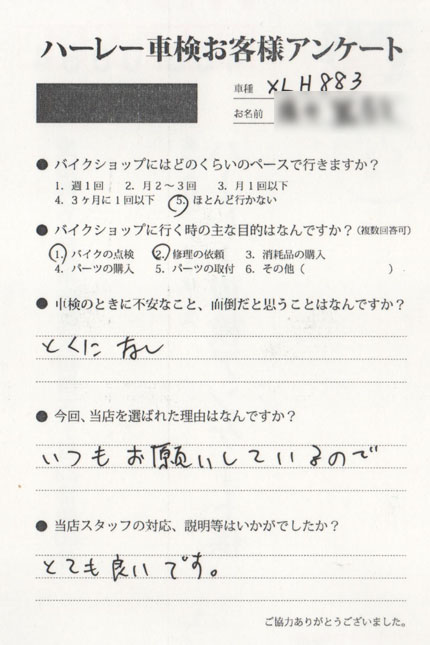 ハーレー車検お客様アンケート
車種 XLH883
お名前
● バイクショップにはどのくらいのペースで行きますか？
1. 週1回 2. 月2～3回 3. 月1回以下
4. 3ヶ月に1回以下 5. ほとんど行かない
● バイクショップに行く時の主な目的はなんですか？(複数回答可)
1. バイクの点検 2. 修理の依頼 3. 消耗品の購入
4. パーツの購入 5. パーツの取付 6. その他（ ）
● 車検のときに不安なこと、面倒だと思うことはなんですか？
とくに なし
● 今回、当店を選ばれた理由はなんですか？
いつも お願いしているので
● 当店スタッフの対応、説明等はいかがでしたか？
とても良いです。
ご協力ありがとうございました。